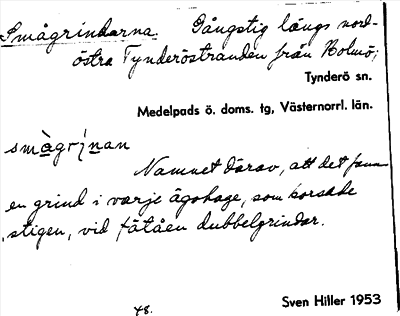 Smågrindarna. Gångstig längs nord-
östra Tynderöstranden från Holmö;
Tynderö sn.
Medelpads ö. doms. tg, Västernorrl. län.
smàgrinan
Namnet därav, att det fanns
en grind i varje ägohage, som korsade
stigen, vid fätåen dubbelgrindar.
48.
Sven Hiller 1953